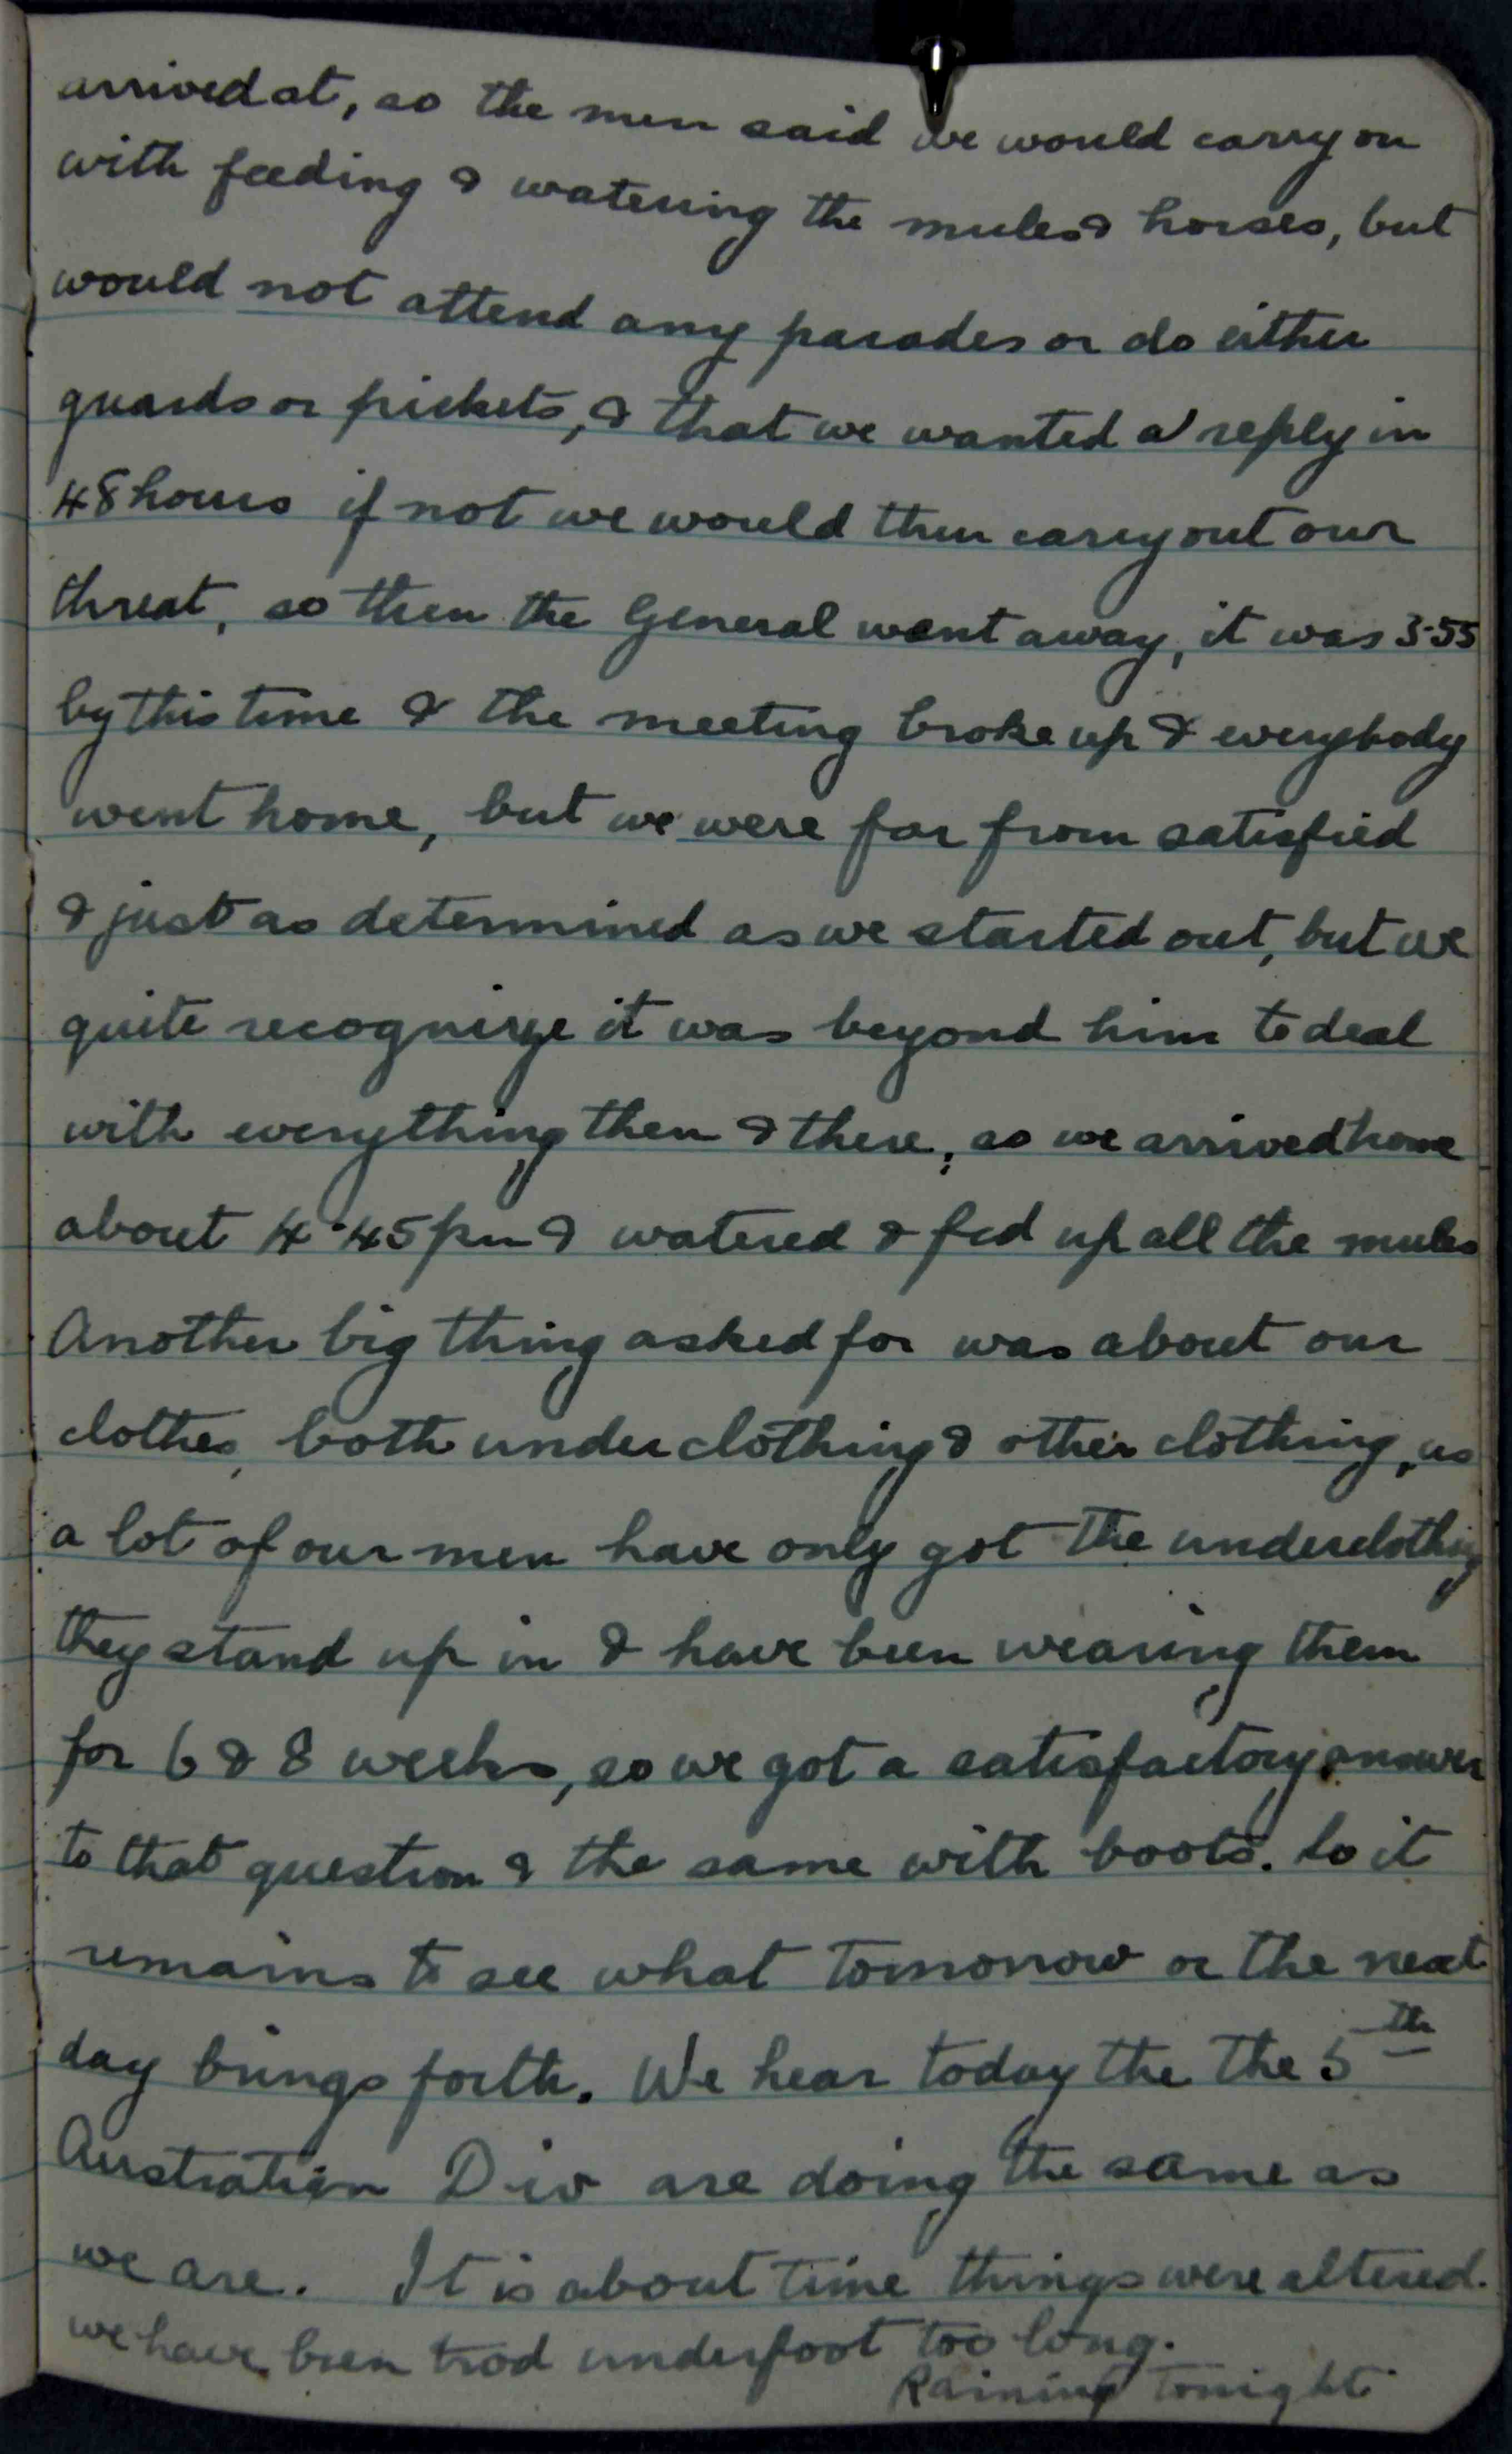 arrived at, so the men said we would carry on
with feeding & watering the mules & horses, but
would not attend any parades or do either
guards or pickets, & that we wanted a reply in
48 hours if not we would then carry out our
threat, so then the General went away, it was 3-55
by this time & the meeting broke up & everybody
went home, but we were far from satisfied
& just as determined as we started out, but we
quite recognize it was beyond him to deal
with everything then & there, so we arrived home
about 4.45 pm & watered & fed up all the mules
Another big thing asked for was about our
clothes, both under clothing & other clothing, as
a lot of our men have only got the underclothing
they stand up in & have been wearing them
for 6 & 8 weeks, so we got a satisfactory answer
to that question & the same with boots. So it
remains to see what tomorrow or the next
day brings forth. We hear today the the 5th
Australian Div are doing the same as
we are. It is about time things were altered.
we have been trod underfoot too long.
Raining tonight